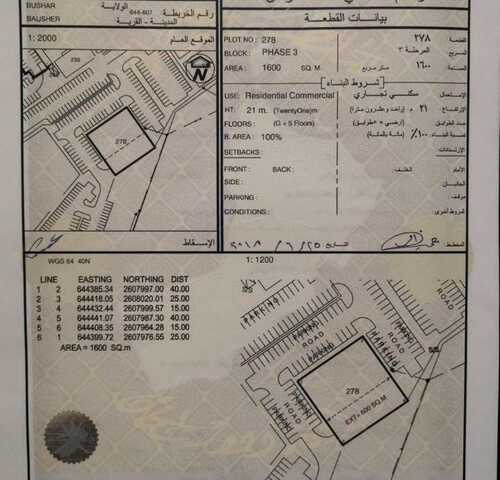 BUSHAR
الولاية
BAUSHER
644-607
رقم الخريطة
المدينة - القرية
1: 2000
الموقع العام
N
278
بيانات القطعة
PLOT NO : 278
٢٧٨
القطعة
BLOCK : PHASE 3
المرحلة ٣
المربع
AREA : 1600 SQ. M
متر مربع
١٦٠٠
المساحة
شروط البناء
USE: Residential Commercial
سكني تجاري
الإستعمال
HT: 21 m. (TwentyOne)m
٢١ م (واحد وعشرون مترا)
الإرتفاع
FLOORS : (G + 5 Floors)
(أرضي + ٥ طوابق)
عدد الطوابق
B. AREA : 100%
١٠٠٪ (مائة بالمائة)
نسبة البناء
SETBACKS :
الإرتدادات
FRONT : BACK :
الخلف
الأمام
SIDE :
الجانبان
PARKING :
موقف
CONDITIONS :
شروط أخرى
المخطط
الإسقاط
WGS 84 40N
1: 1200
LINE EASTING NORTHING DIST
1 2 644385.34 2607997.00 40.00
2 3 644418.05 2608020.01 25.00
3 4 644432.44 2607999.57 15.00
4 5 644441.07 2607987.30 40.00
5 6 644408.35 2607964.28 15.00
6 1 644399.72 2607976.55 25.00
AREA = 1600 SQ.m
PARKING
PARKING
ROAD
PARKING
ROAD
PARKING
ROAD
PARKING
ROAD
278
EXT- 600 SQ.M